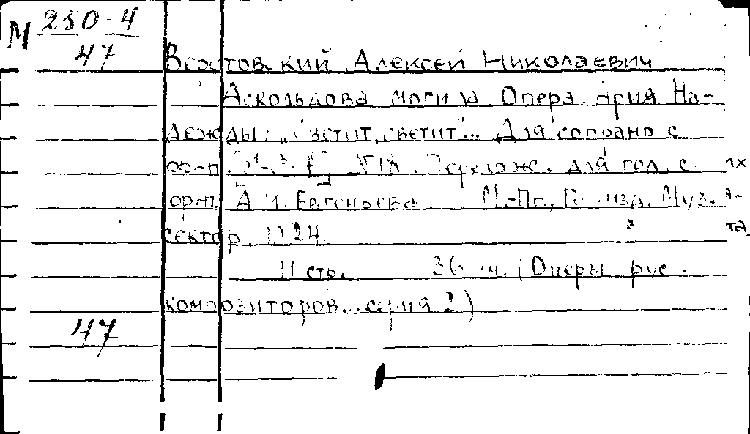 М 250-4
47
Верстовский Алексей Николаевич
Аскольдова могила Опера Ария На-
дежды: „Светит, светит"... Для сопрано с
ф-п. №18. Перелож. для гол. с
ф-п. А. Евгеньева М.-Пг., Гос. изд. Муз.
сектор, 1924
11 стр. 36 см. (Оперы рус.
композиторов. серия 2)
47